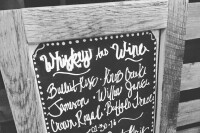 Whiskey AND Wine
Bulleit Rye · Knob Creek
Jameson · Willow Games
Crown Royal · Buffalo Trace